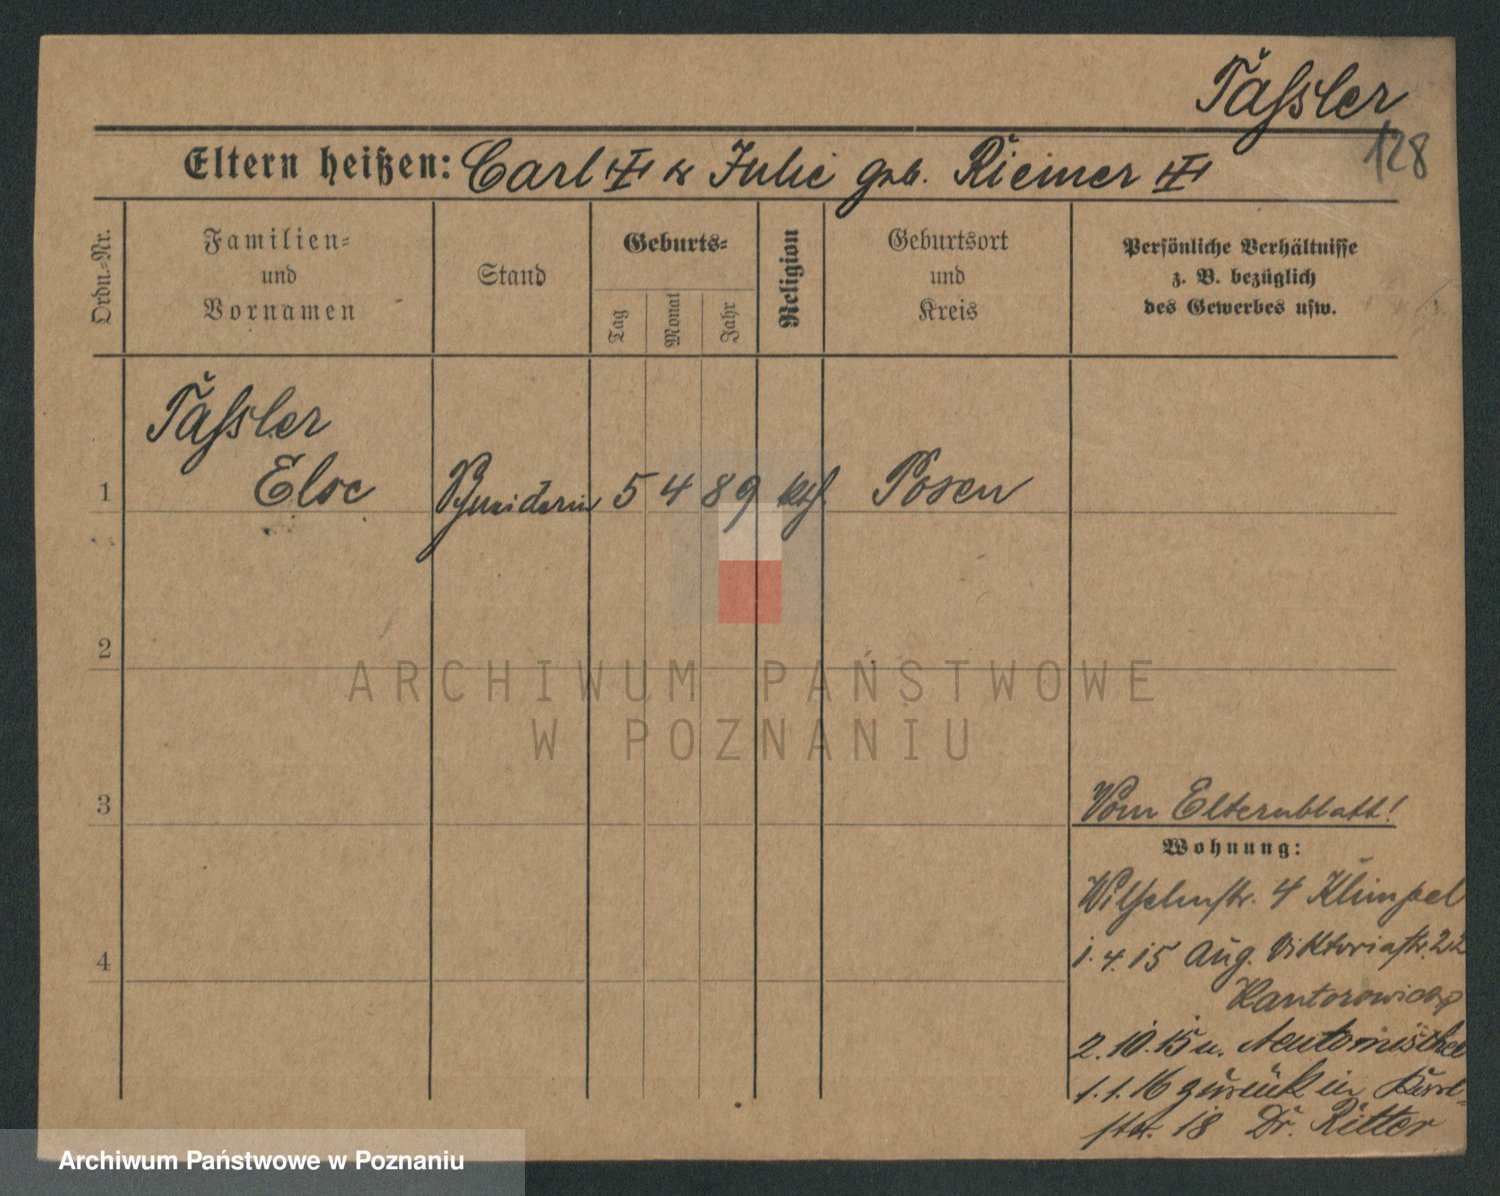 Taßler
128
Eltern heißen: Carl u Julie geb. Riemer
Ordn.-Nr.
Familien-
und
Vornamen
Stand
Geburts-
Tag
Monat
Jahr
Religion
Geburtsort
und
Kreis
Persönliche Verhältnisse
z. B. bezüglich
des Gewerbes usw.
Taßler
1 Else 5 4 89 kth Posen
2
3
Vom Elternblatt!
Wohnung:
Wilhelmstr. 4 Klimpel
1.4.15 Aug. Viktoriastr. 22
Kantorowicz
4
2.10.15 n. Neutomischel
1.1.16 zurück in
str. 18 Dr. Ritter
ARCHIWUM PAŃSTWOWE
W POZNANIU
Archiwum Państwowe w Poznaniu